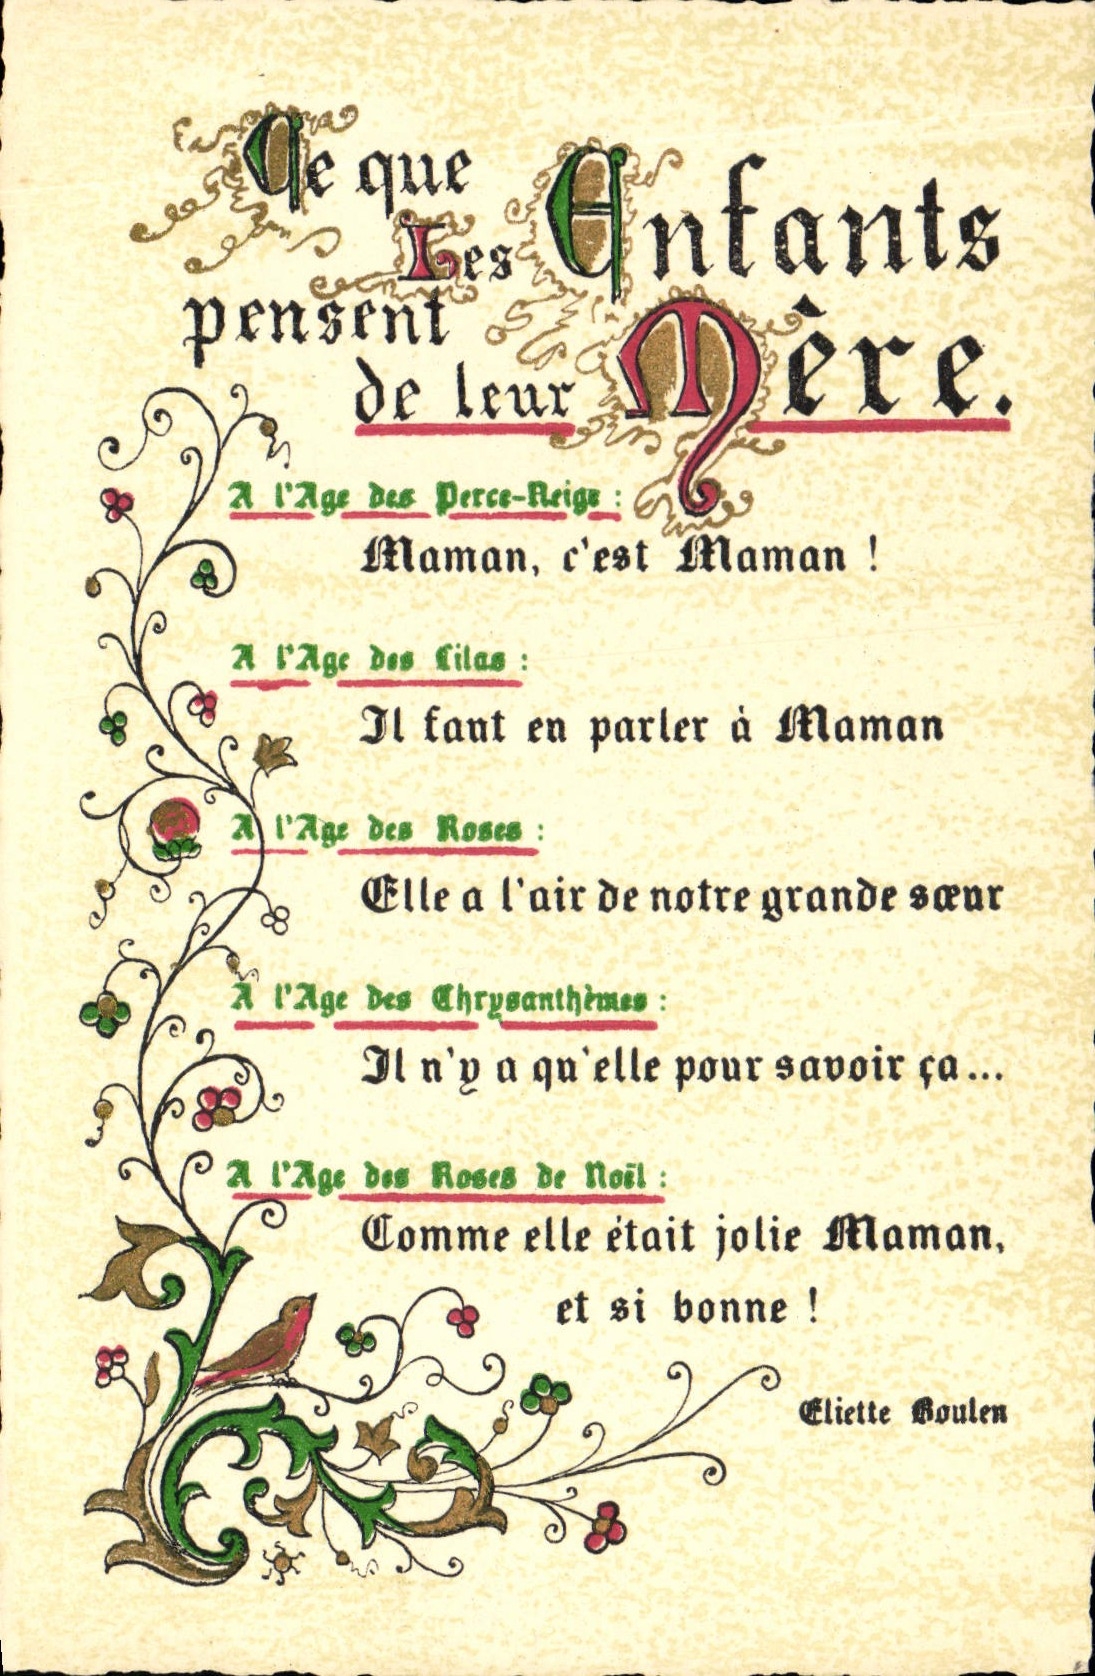 Ce que
Les Enfants
pensent
de leur Mêre.
A l'Age des Perce-Neige :
Maman, c'est Maman !
A l'Age des Lilas :
Il faut en parler à Maman
A l'Age des Roses :
Elle a l'air de notre grande sœur
A l'Age des Chrysanthèmes :
Il n'y a qu'elle pour savoir ça...
A l'Age des Roses de Noël :
Comme elle était jolie Maman,
et si bonne !
Eliette Boulen